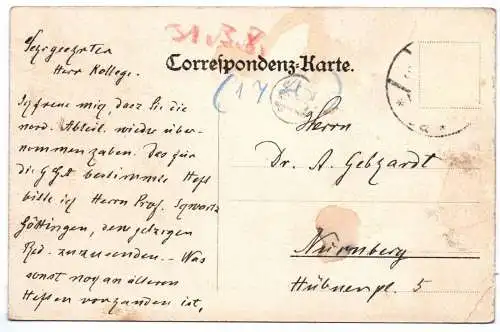 31 . 3. 8.
Correspondenz-Karte.
(17)
Sehrgeehrter
Herr Kollege.
Ich freue mich, dass Sie die
nord. Abteil. wieder über-
nommen haben. Das für
die bestimmte Heft
bitte ich Herrn Prof.
Göttingen, dem jetzigen
Red. zuzusenden. – Was
sonst noch an älteren
Heften vorhanden ist,
Herrn
Dr. A. Gebhardt.
Nürnberg
Hübnerspl. 5